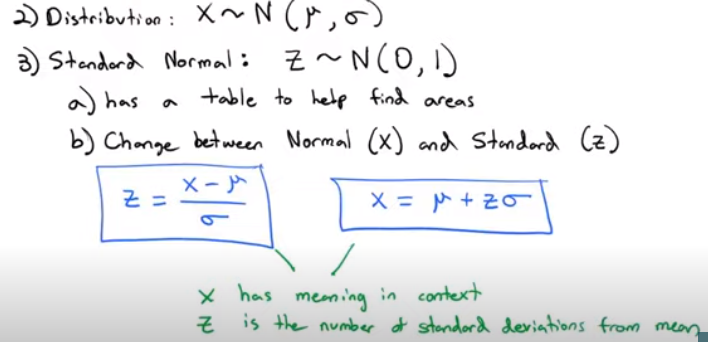 2) Distribution: X ~ N(μ, σ)
3) Standard Normal: Z ~ N(0, 1)
a) has a table to help find areas
b) Change between Normal (X) and Standard (Z)
Z = (X - μ) / σ
X = μ + Zσ
X has meaning in context
Z is the number of standard deviations from mean